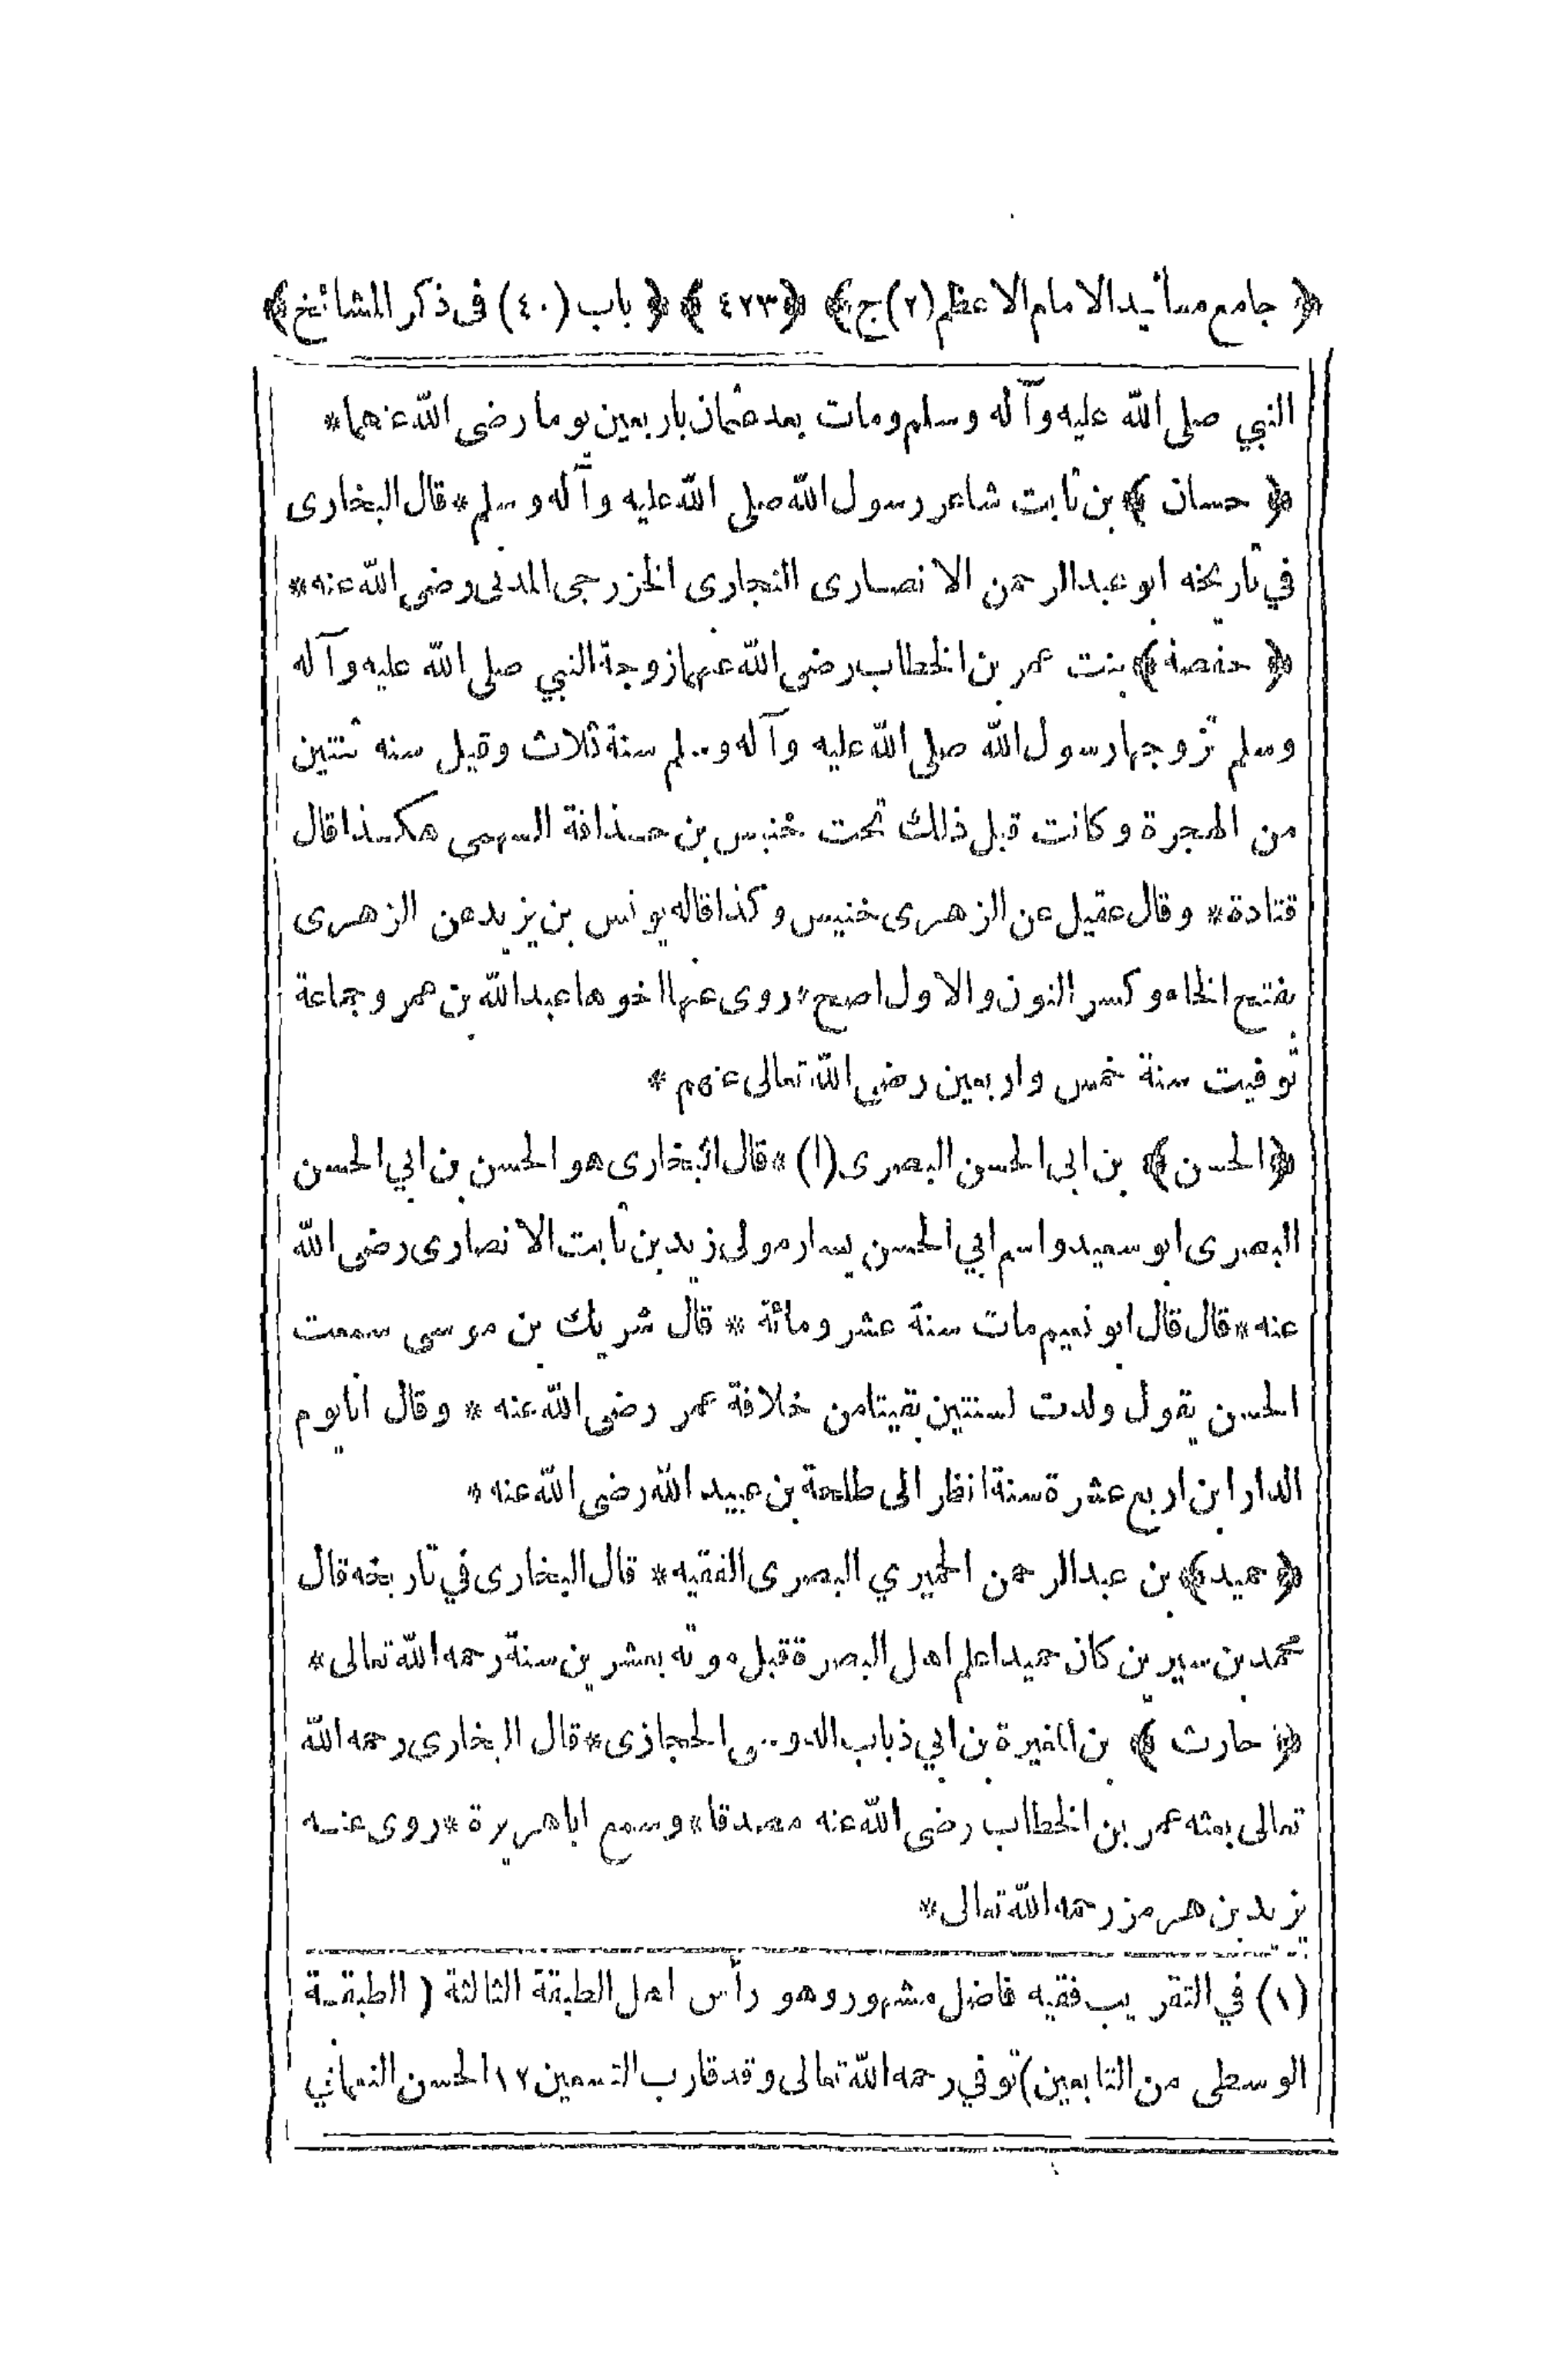 ﴿ جامع مسانيد الامام الاعظم (٢) ج ﴾ ﴿ ٤٢٣ ﴾ ﴿ باب (٤٠) فى ذكر المشائخ ﴾
النبي صلى الله عليه وآله وسلم ومات بعد عثمان باربعين يوما رضى الله عنهما *
﴿ حسان ﴾ بن ثابت شاعر رسول الله صلى الله عليه وآله وسلم * قال البخارى
في تاريخه ابو عبد الرحمن الانصارى النجارى الخزرجى المدنى رضى الله عنه *
﴿ حفصة ﴾ بنت عمر بن الخطاب رضى الله عنهما زوجة النبي صلى الله عليه وآله
وسلم تزوجها رسول الله صلى الله عليه وآله وسلم سنة ثلاث وقيل سنه ثنتين
من الهجرة وكانت قبل ذلك تحت خنيس بن حذافة السهمى هكذا قال
قتادة * وقال عقيل عن الزهرى خنيس وكذا قاله يونس بن يزيد عن الزهرى
بفتح الخاء وكسر النون والاول اصح * روى عنها اخوها عبد الله بن عمر وجماعة
توفيت سنة خمس واربعين رضى الله تعالى عنهم *
﴿ الحسن ﴾ بن ابى الحسن البصرى (١) * قال البخارى هو الحسن بن ابي الحسن
البصرى ابو سعيد واسم ابي الحسن يسار مولى زيد بن ثابت الانصارى رضى الله
عنه * قال قال ابو نعيم مات سنة عشر ومائة * قال شريك بن موسى سمعت
الحسن يقول ولدت لسنتين بقيتا من خلافة عمر رضى الله عنه * وقال انا يوم
الدار ابن اربع عشرة سنة انظر الى طلحة بن عبيد الله رضى الله عنه *
﴿ حميد ﴾ بن عبد الرحمن الحميري البصرى الفقيه * قال البخارى في تاريخه قال
محمد بن سيرين كان حميد اعلم اهل البصرة قبل موته بعشرين سنة رحمه الله تعالى *
﴿ حارث ﴾ بن المغيرة بن ابي ذباب الدوسى الحجازى * قال البخارى رحمه الله
تعالى بعثه عمر بن الخطاب رضى الله عنه مصدقا * وسمع ابا هريرة * روى عنه
يزيد بن هرمز رحمه الله تعالى *
(١) في التقريب فقيه فاضل مشهور وهو رأس اهل الطبقة الثالثة ( الطبقة
الوسطى من التابعين) توفي رحمه الله تعالى وقد قارب التسعين ١٢ الحسن النعماني